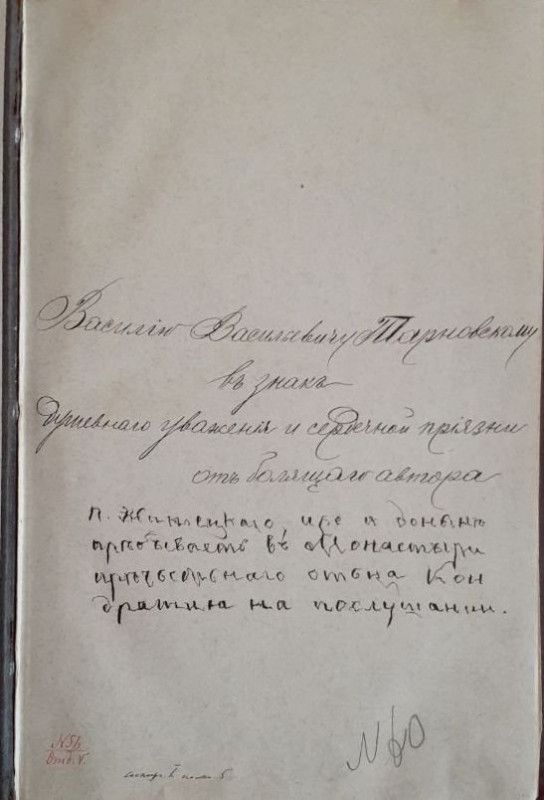 Василію Василиевичу Тарновскому
въ знакъ
душевнаго уваженія и сердечной пріязни
отъ болящаго автора
П. Житецкаго, иже и донынѣ
пребываетъ въ Монастыри
отьца Кон
дратия на послушании.
N 56
Отд. V.
N 60